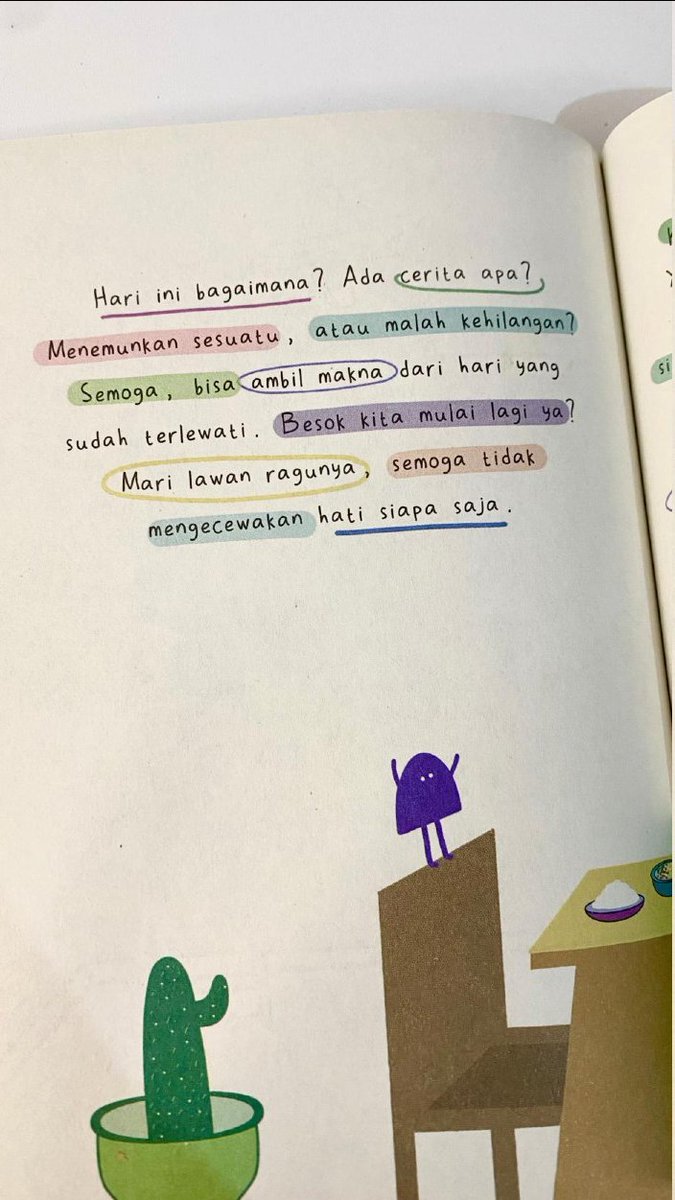 Hari ini bagaimana? Ada cerita apa?
Menemunkan sesuatu, atau malah kehilangan?
Semoga, bisa ambil makna dari hari yang
sudah terlewati. Besok kita mulai lagi ya?
Mari lawan ragunya, semoga tidak
mengecewakan hati siapa saja.
si